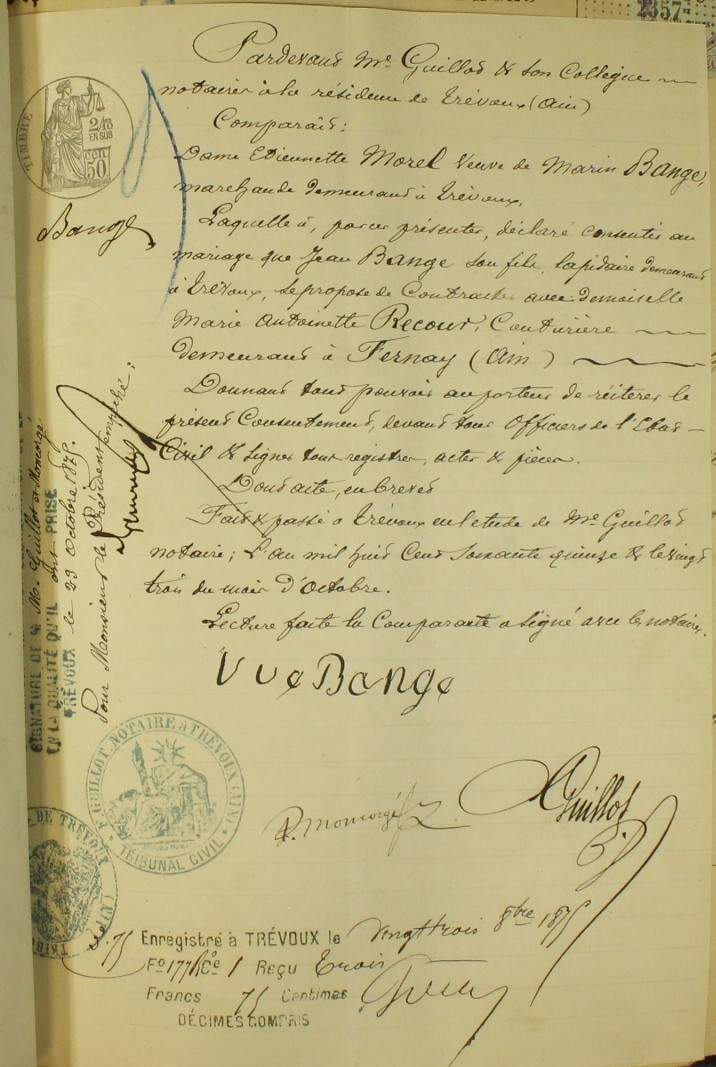 2357
Pardevant Me Guillot & son Collègue
notaires à la résidence de Trévoux (Ain)
Comparait:
Dame Etiennette Morel Veuve de Marin Bange,
marchande demeurant à Trévoux.
Laquelle à, par ces présentes, déclaré consentir au
mariage que Jean Bange son fils, lapidaire demeurant
à Trévoux, se propose de Contracter avec demoiselle
Marie Antoinette Recour, Couturière
demeurant à Fernay (Ain)
Donnant tout pouvoir au porteur de réiterer le
présent Consentement, devant tous Officiers de l'Etat
Civil & signer tous registres, actes & pièces.
Dont acte, en brevet
Fait & passé à Trévoux en l'etude de Me Guillot
notaire; L'an mil huit Cent soixante quinze & le vingt
trois du mois d'Octobre.
Lecture faite la Comparante a signé avec les notaires.
Vve Bange
P. Moncorgé
Guillot
TIMBRE
2/10
EN SUS
50 CEN
Bange
SIGNATURE DE M. M. Guillot & Moncorgé
EN LA QUALITÉ QU'IL ont PRISE
TRÉVOUX le 23 Octobre 1875.
Pour Monsieur le Président empêché:
GUILLOT, NOTAIRE A TRÉVOUX (AIN)
TRIBUNAL CIVIL
DE TRÉVOUX
(AIN)
Enregistré à TRÉVOUX le Vingt trois 8bre 1875
Fo 177 Co 1 Reçu trois
Francs 75 Centimes
DÉCIMES COMPRIS
3.75